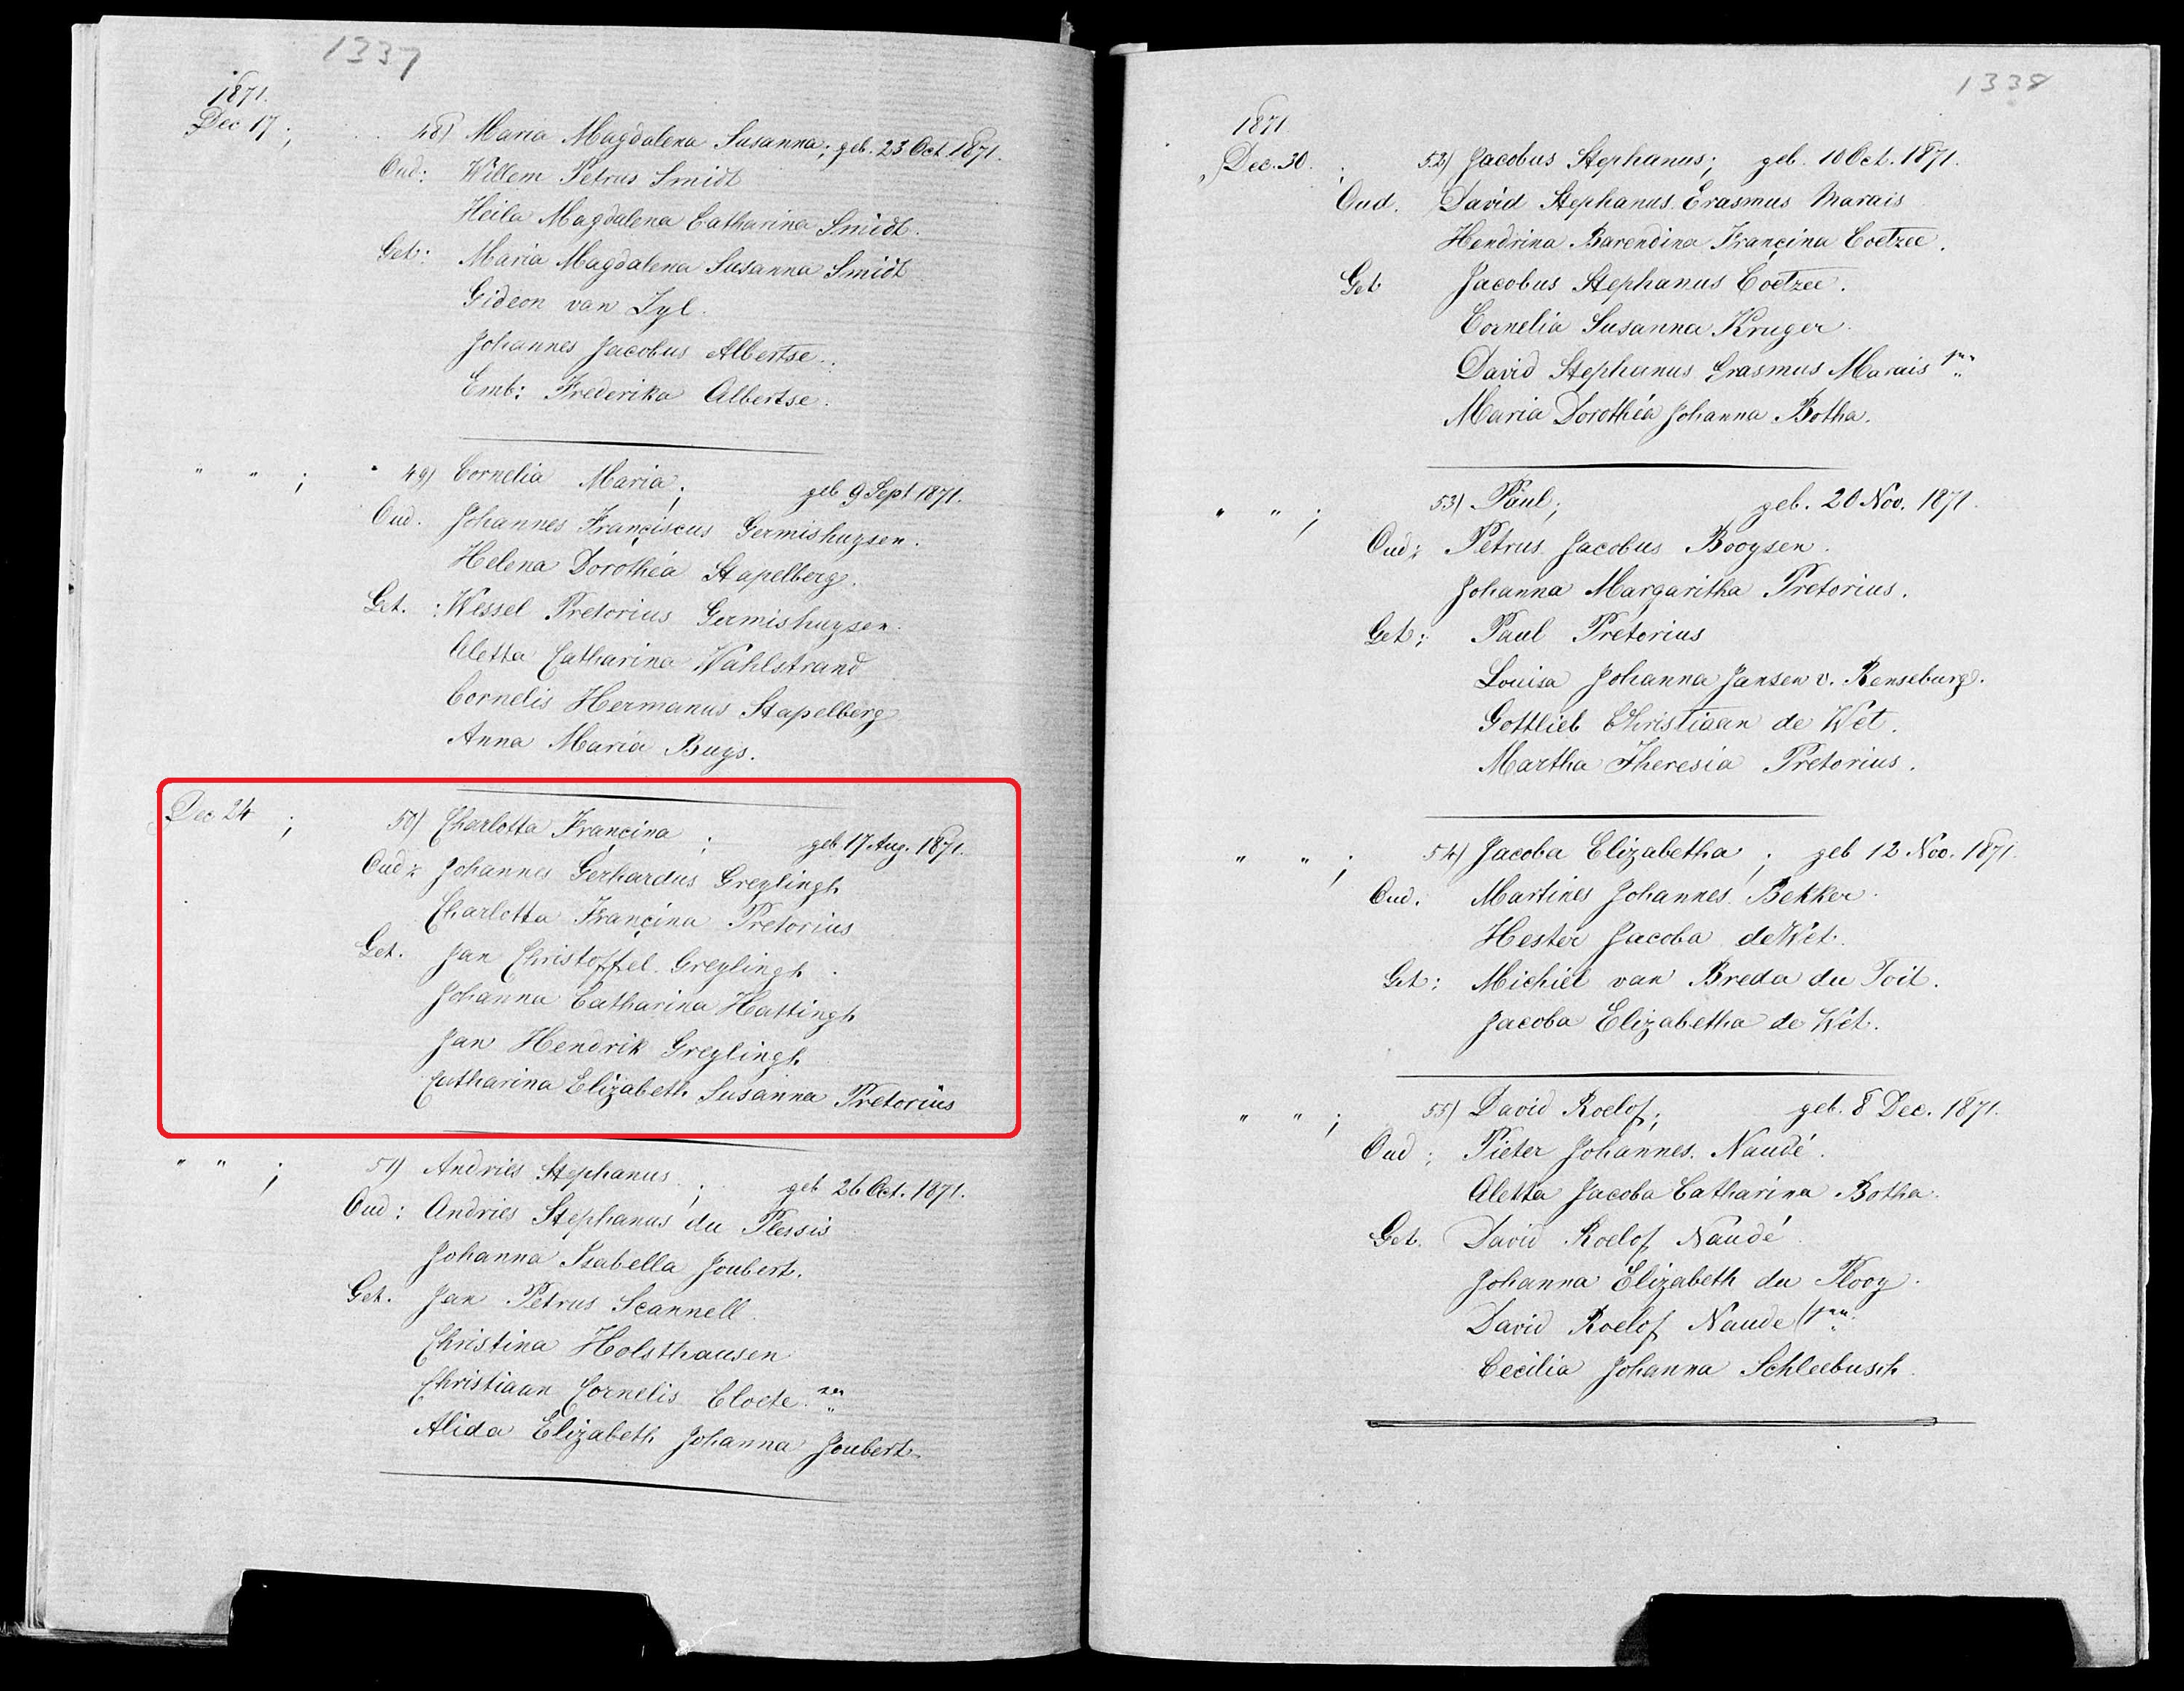 1337
1871.
Dec 17 ; 48) Maria Magdalena Susanna; geb. 23 Oct 1871.
Oud: Willem Petrus Smidt
Heila Magdalena Catharina Smidt.
Get: Maria Magdalena Susanna Smidt
Gideon van Zyl.
Johannes Jacobus Albertse.
Emb: Frederika Albertse.
" " ; 49) Cornelia Maria; geb 9 Sept 1871.
Oud. Johannes Françiscus Germishuyzen.
Helena Dorothéa Stapelberg.
Get. : Wessel Pretorius Germishuyzen.
Aletta Catharina Wahlstrand
Cornelis Hermanus Stapelberg
Anna Maria Buys.
Dec 24 ; 50) Charlotta Françina ; geb 17 Aug. 1871.
Oud: Johannes Gerhardus Greylingh
Charlotta Françina Pretorius
Get. Jan Christoffel Greylingh.
Johanna Catharina Hattingh
Jan Hendrik Greylingh
Catharina Elizabeth Susanna Pretorius
" " ; 51) Andries Stephanus ; geb 26 Oct. 1871.
Oud: Andries Stephanus du Plessis
Johanna Isabella Joubert.
Get. Jan Petrus Scannell.
Christina Holsthausen
Christiaan Cornelis Cloete sen
Alida Elizabeth Johanna Joubert
1338
1871
Dec. 30. ; 52) Jacobus Stephanus; geb. 10 Oct. 1871.
Oud. David Stephanus Erasmus Marais
Hendrina Barendina Françina Coetzee.
Get Jacobus Stephanus Coetzee.
Cornelia Susanna Kruger.
David Stephanus Erasmus Marais
Maria Dorothéa Johanna Botha.
" " ; 53) Paul; geb. 20 Nov. 1871.
Oud: Petrus Jacobus Booysen.
Johanna Margaritha Pretorius.
Get: Paul Pretorius
Louisa Johanna Jansen v. Renseburg.
Gottlieb Christiaan de Wet.
Martha Theresia Pretorius.
" " ; 54) Jacoba Elizabetha ; geb 12 Nov. 1871.
Oud. Martines Johannes Bekker.
Hester Jacoba de Wet.
Get: Michiel van Breda du Toit.
Jacoba Elizabetha de Wet.
" " ; 55) David Roelof; geb. 8 Dec. 1871.
Oud : Pieter Johannes. Naudé.
Aletta Jacoba Catharina Botha.
Get. David Roelof Naudé
Johanna Elizabeth du Plooy.
David Roelof Naude
Cecilia Johanna Schleebusch.